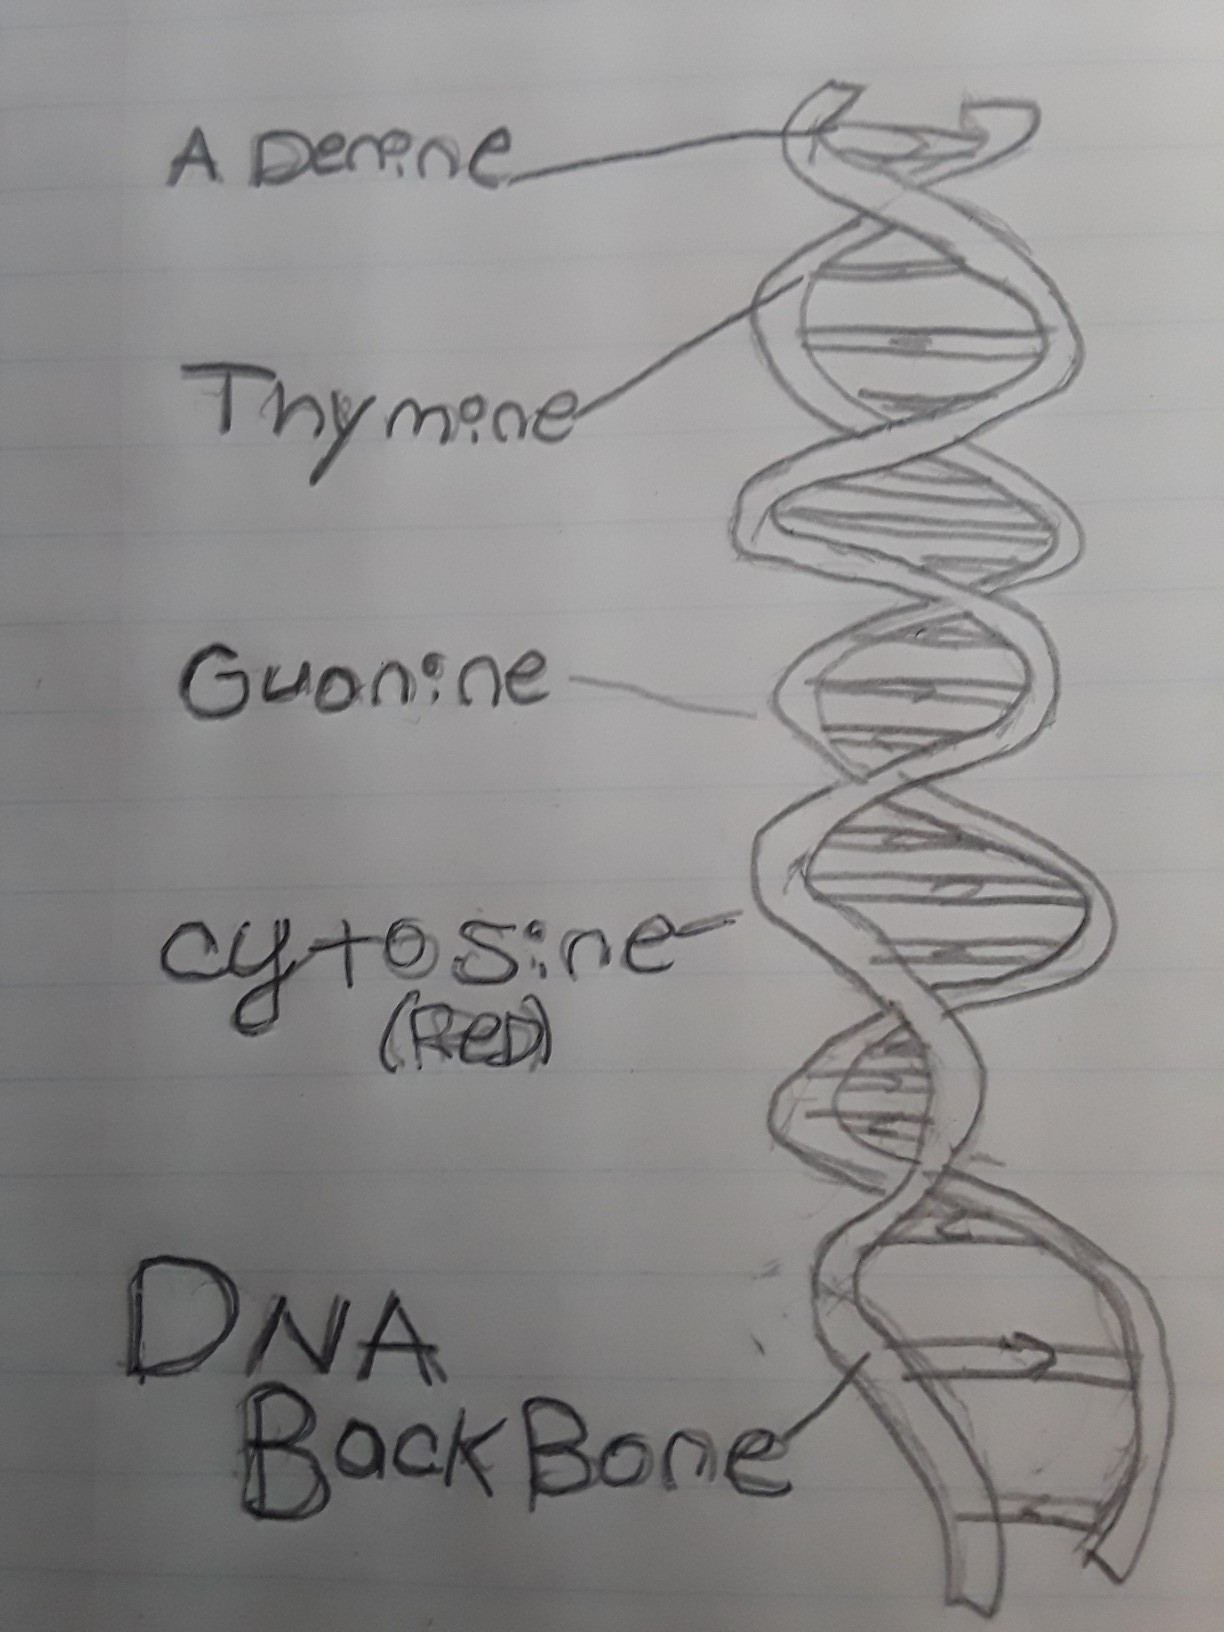 ADenine
Thymine
Guanine
cytosine
(ReD)
DNA
BackBone